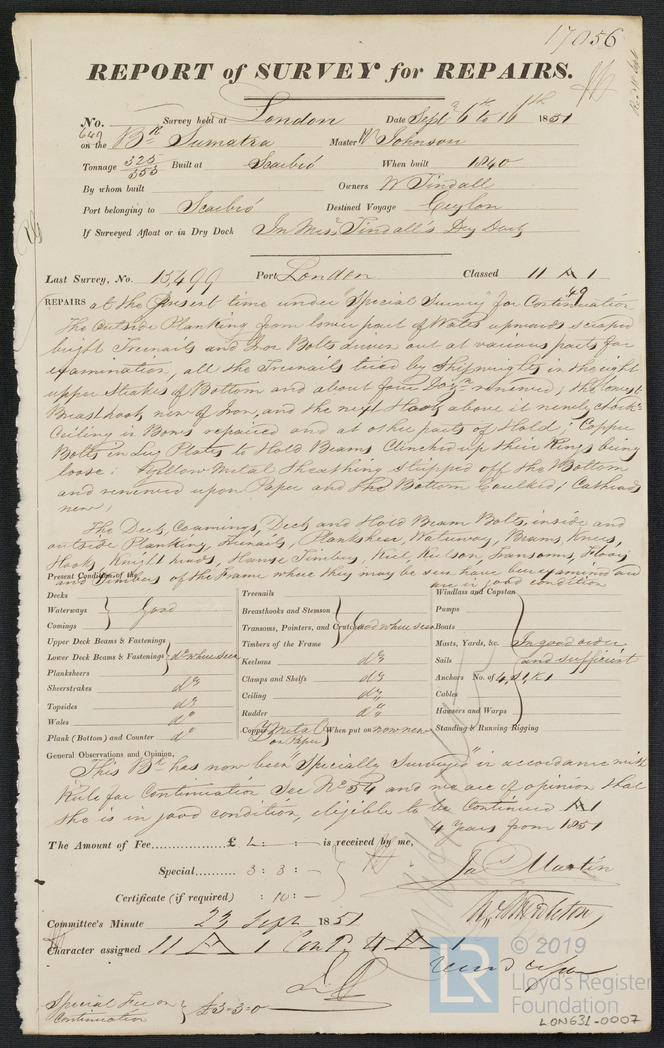 17056
REPORT of SURVEY for REPAIRS.
No. Survey held at London Date Sept 6th to 16th 1851
649
on the Bk Sumatra Master W Johnson
Tonnage 525 555 Built at Scarbro' When built 1840
By whom built Owners W Tindall
Port belonging to Scarbro' Destined Voyage Ceylon
If Surveyed Afloat or in Dry Dock In Messrs Tindall's Dry Dock
Last Survey, No. 15,499 Port London Classed 11 A 1
49
REPAIRS at the present time under "Special Survey" for Continuation
The Outside Planking from lower part of Wales upwards scraped
bright Treenails and Iron Bolts driven out at various parts for
examination, all the Treenails tried by Shipwrights in the eight
upper strakes of Bottom and about four Dozn renewed; the lowest
Breasthook new of Iron, and the next Hook above it newly
Ceiling in Bows repaired and at other parts of Hold; Copper
Bolts in Lug Plates to Hold Beams Clinched up their Rings being
loose: Yellow Metal Sheathing stripped off the Bottom
and renewed upon Paper and the Bottom Caulked; Catheads
new;
The Deck, Coamings, Deck and Hold Beam Bolts, inside and
outside Planking, Treenails, Plankshear, Waterway, Beams, Knees,
Hooks, Knight heads, Hawse Timbers, Keel Keelson, Transoms, Floors
and Timbers of the Frame where they may be seen have been examined and
are in good condition
Present Condition of the
Decks
Waterways Good
Comings
Upper Deck Beams & Fastenings
Lower Deck Beams & Fastenings do where seen
Planksheers
Sheerstrakes do
Topsides do
Wales do
Plank (Bottom) and Counter do
Treenails
Breasthooks and Stemson
Transoms, Pointers, and Crutches Good where seen
Timbers of the Frame
Keelsons do
Clamps and Shelfs do
Ceiling do
Rudder do
Copper Y Metal on Paper When put on now new
Windlass and Capstan
Pumps
Boats
Masts, Yards, &c. In good order
Sails and sufficient
Anchors No. of 4, S1, K1
Cables
Hawsers and Warps
Standing & Running Rigging
General Observations and Opinion,
This Bk has now been "Specially Surveyed" in accordance with
Rule for Continuation See No 54 and we are of opinion that
she is in good condition, eligible to be Continued A 1
4 Years from 1851
The Amount of Fee £ is received by me,
Special 3 : 3 : –
Certificate (if required) : 10 : –
Jas Martin
Committee's Minute 23 Sept 1851
Character assigned 11 A 1 Contd 4 A 1
Special Fee on
Continuation £3-3-0
LR © 2019
Lloyd's Register
Foundation
LON631-0007